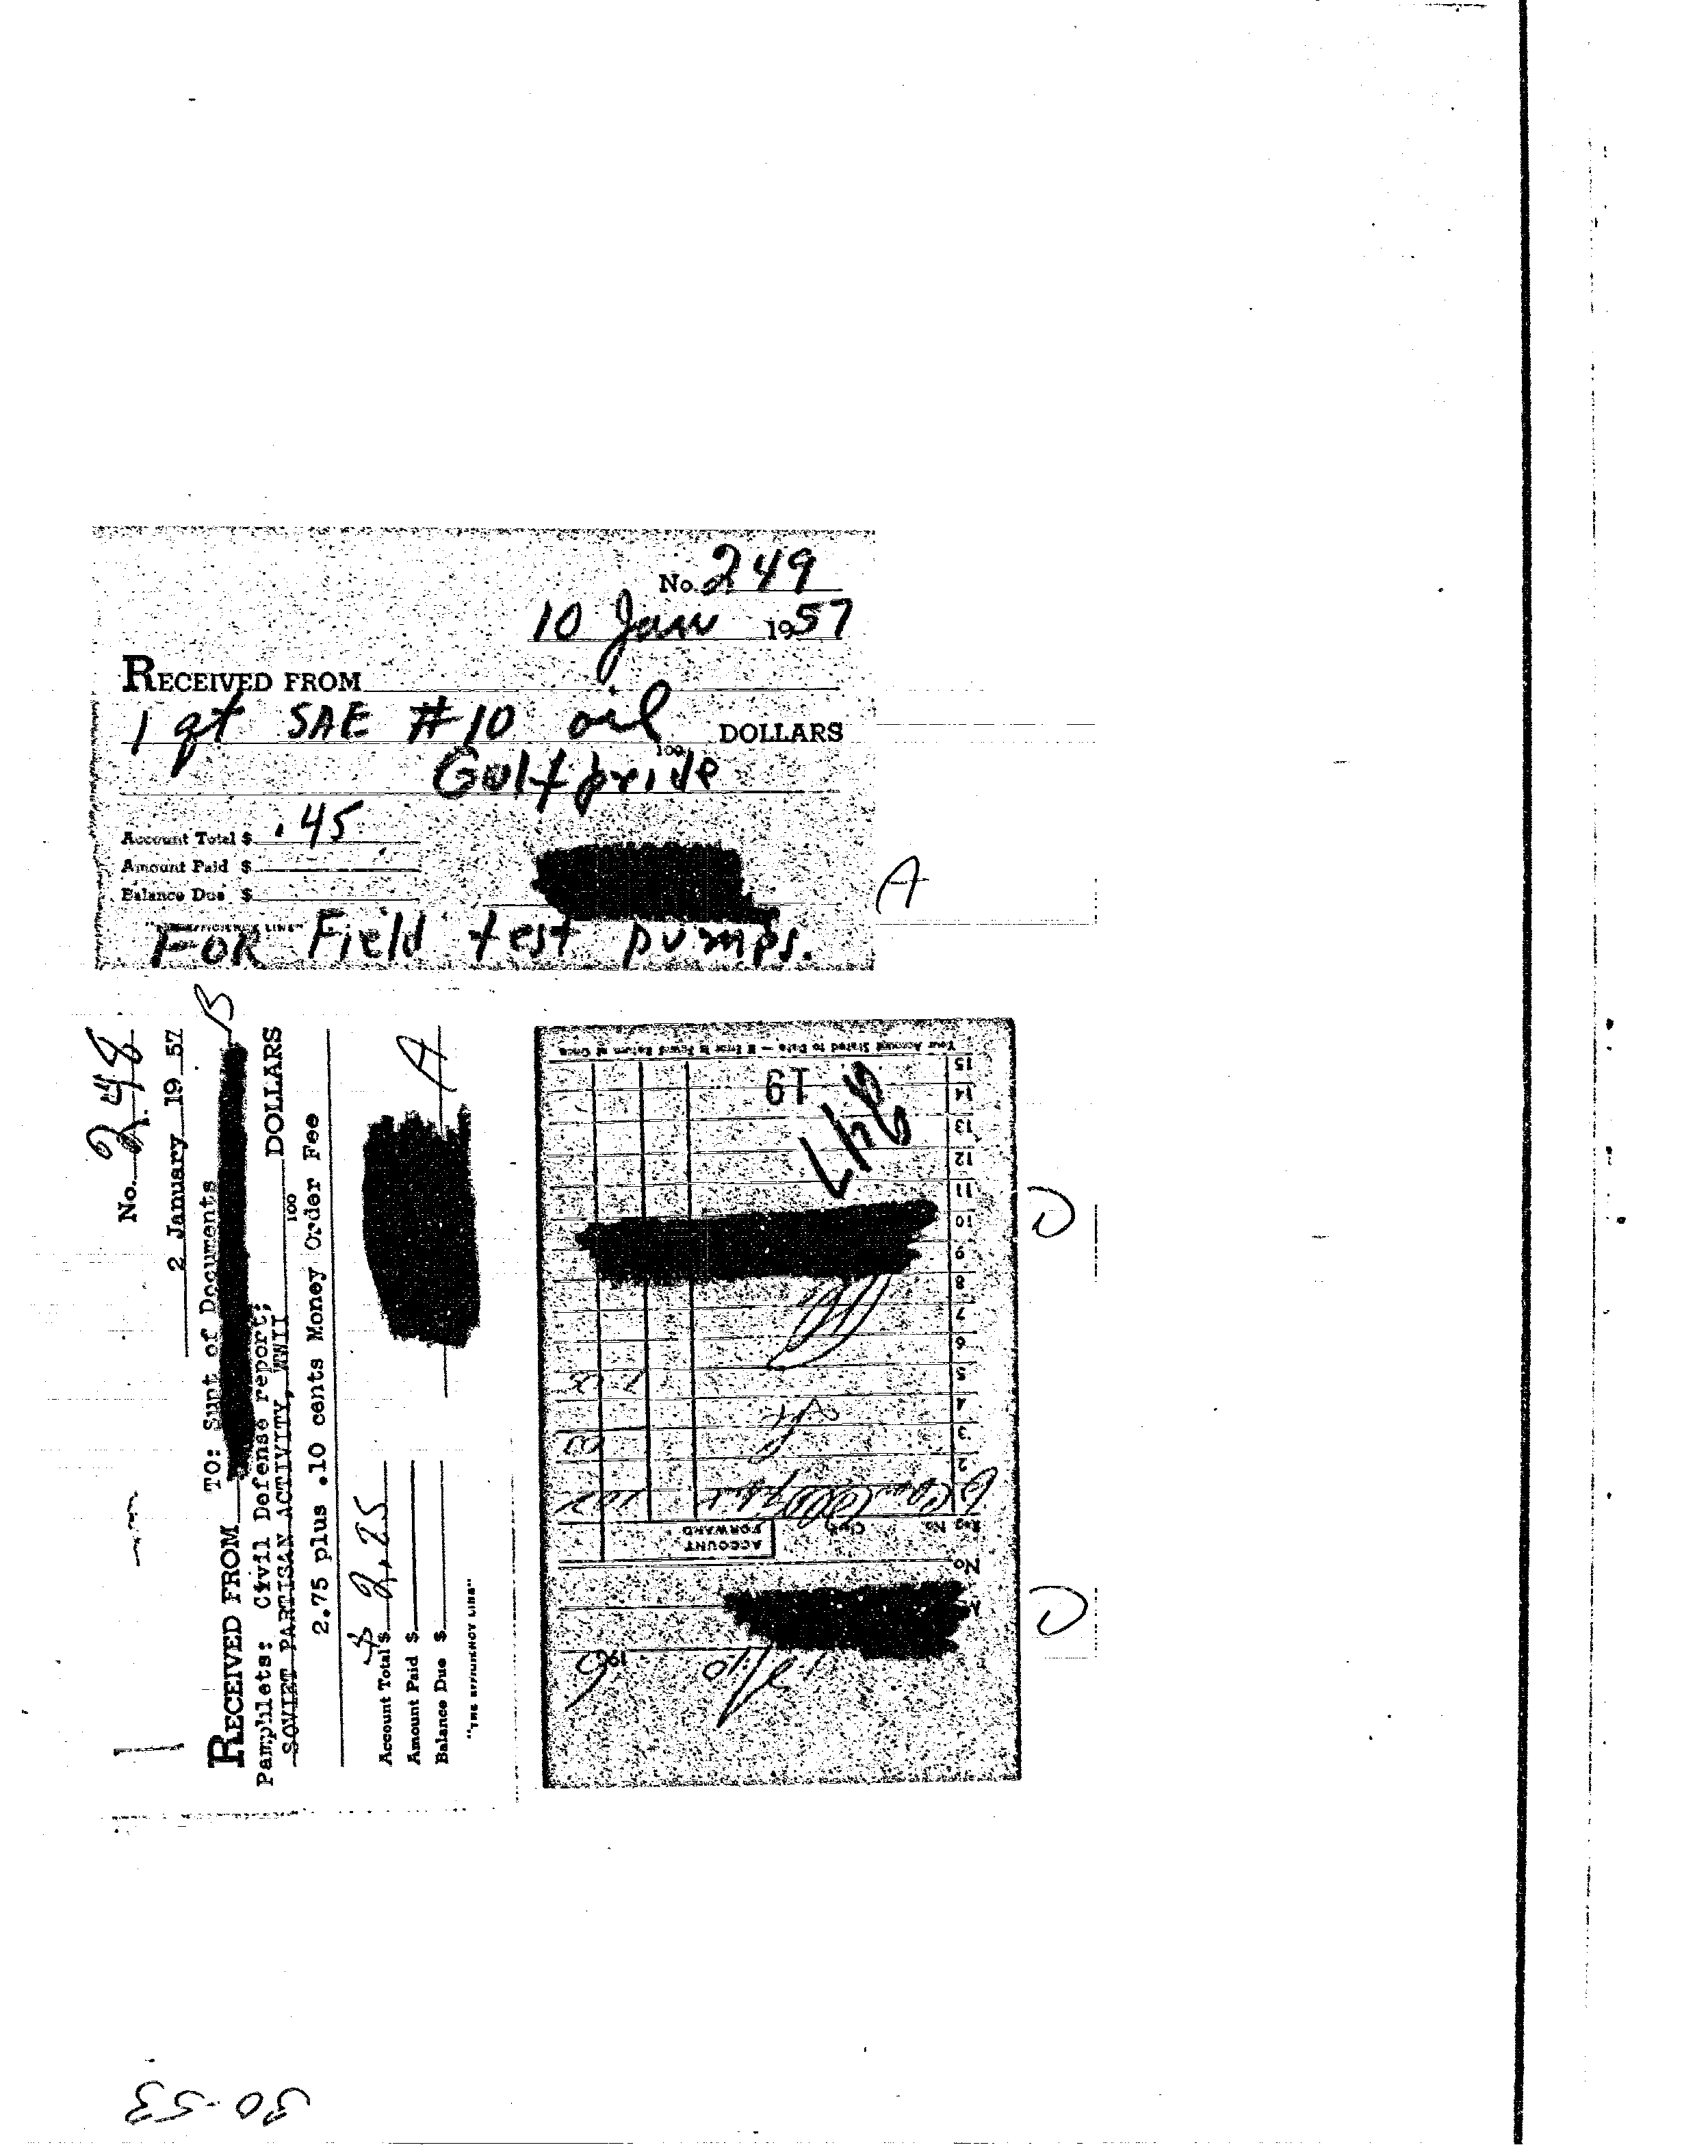 No. 249
10 Jan 1957
RECEIVED FROM
1 qt SAE #10 oil DOLLARS
100
Gulfpride
Account Total $ .45
Amount Paid $
Balance Due $
A
"THE EFFICIENCY LINE"
FOR Field test pumps.
No. 248
2 January 19 57
B
RECEIVED FROM TO: Supt of Documents
Pamphlets: Civil Defense report;
SOVIET PARTISAN ACTIVITY, WWII DOLLARS
100
2.75 plus .10 cents Money Order Fee
Account Total $ $ 2.25
Amount Paid $
Balance Due $
A
"THE EFFICIENCY LINE"
12/10 1956
No.
Reg. No. Clerk ACCOUNT FORWARD
1
2
3
4
5
6
7
8
9
10
11
12
13
14
15
247
19
Your Account Stated to Date — If Error Is Found Return at Once
D
D
30-53